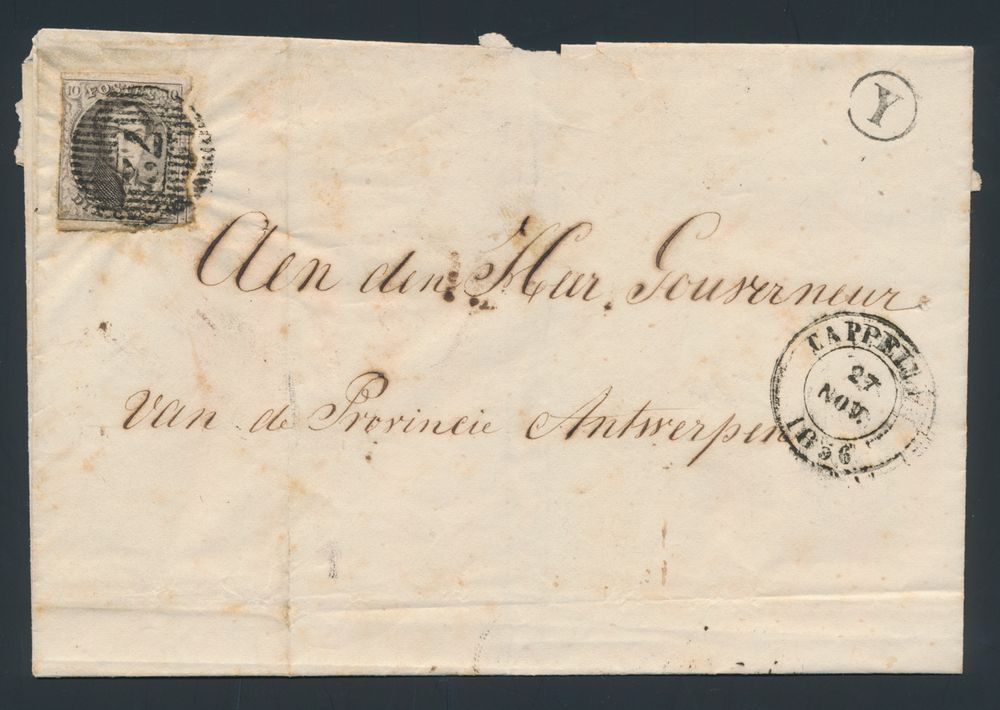 10 POSTES 10
Y
Aen den Heer Gouverneur
van de Provincie Antwerpen
CAPPELLE
27
NOV.
1856